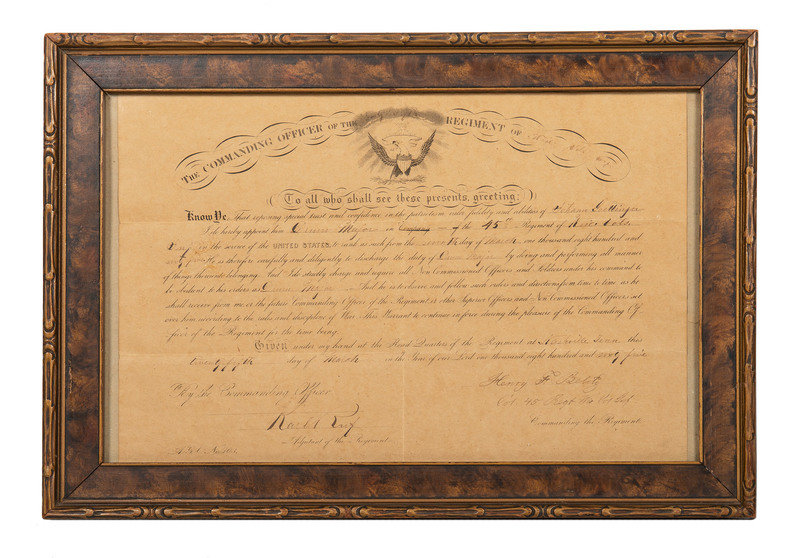 THE COMMANDING OFFICER OF THE REGIMENT OF
To all who shall see these presents, greeting:
Know Ye, that reposing special trust and confidence in the patriotism, valor, fidelity and abilities of Johann
I do hereby appoint him Drum Major in Company of the 45th Regiment of
in the service of the UNITED STATES, to rank as such from the seventh day of March one thousand eight hundred and
sixty five He is therefore carefully and diligently to discharge the duty of Drum Major by doing and performing all manner
of things thereunto belonging. And I do strictly charge and require all Non-Commissioned Officers and Soldiers under his command to
be obedient to his orders as Drum Major And he is to observe and follow such orders and directions from time to time as he
shall receive from me, or the future Commanding Officer of the Regiment, or other Superior Officers and Non-Commissioned Officers set
over him, according to the rules and discipline of War. This Warrant to continue in force during the pleasure of the Commanding Of-
ficer of the Regiment for the time being.
Given under my hand at the Head Quarters of the Regiment at Nashville Tenn this
twenty fifth day of March in the Year of our Lord one thousand eight hundred and sixty five
By the Commanding Officer
Henry F.
Col 45 Regt
Commanding the Regiment.
Adjutant of the Regiment.